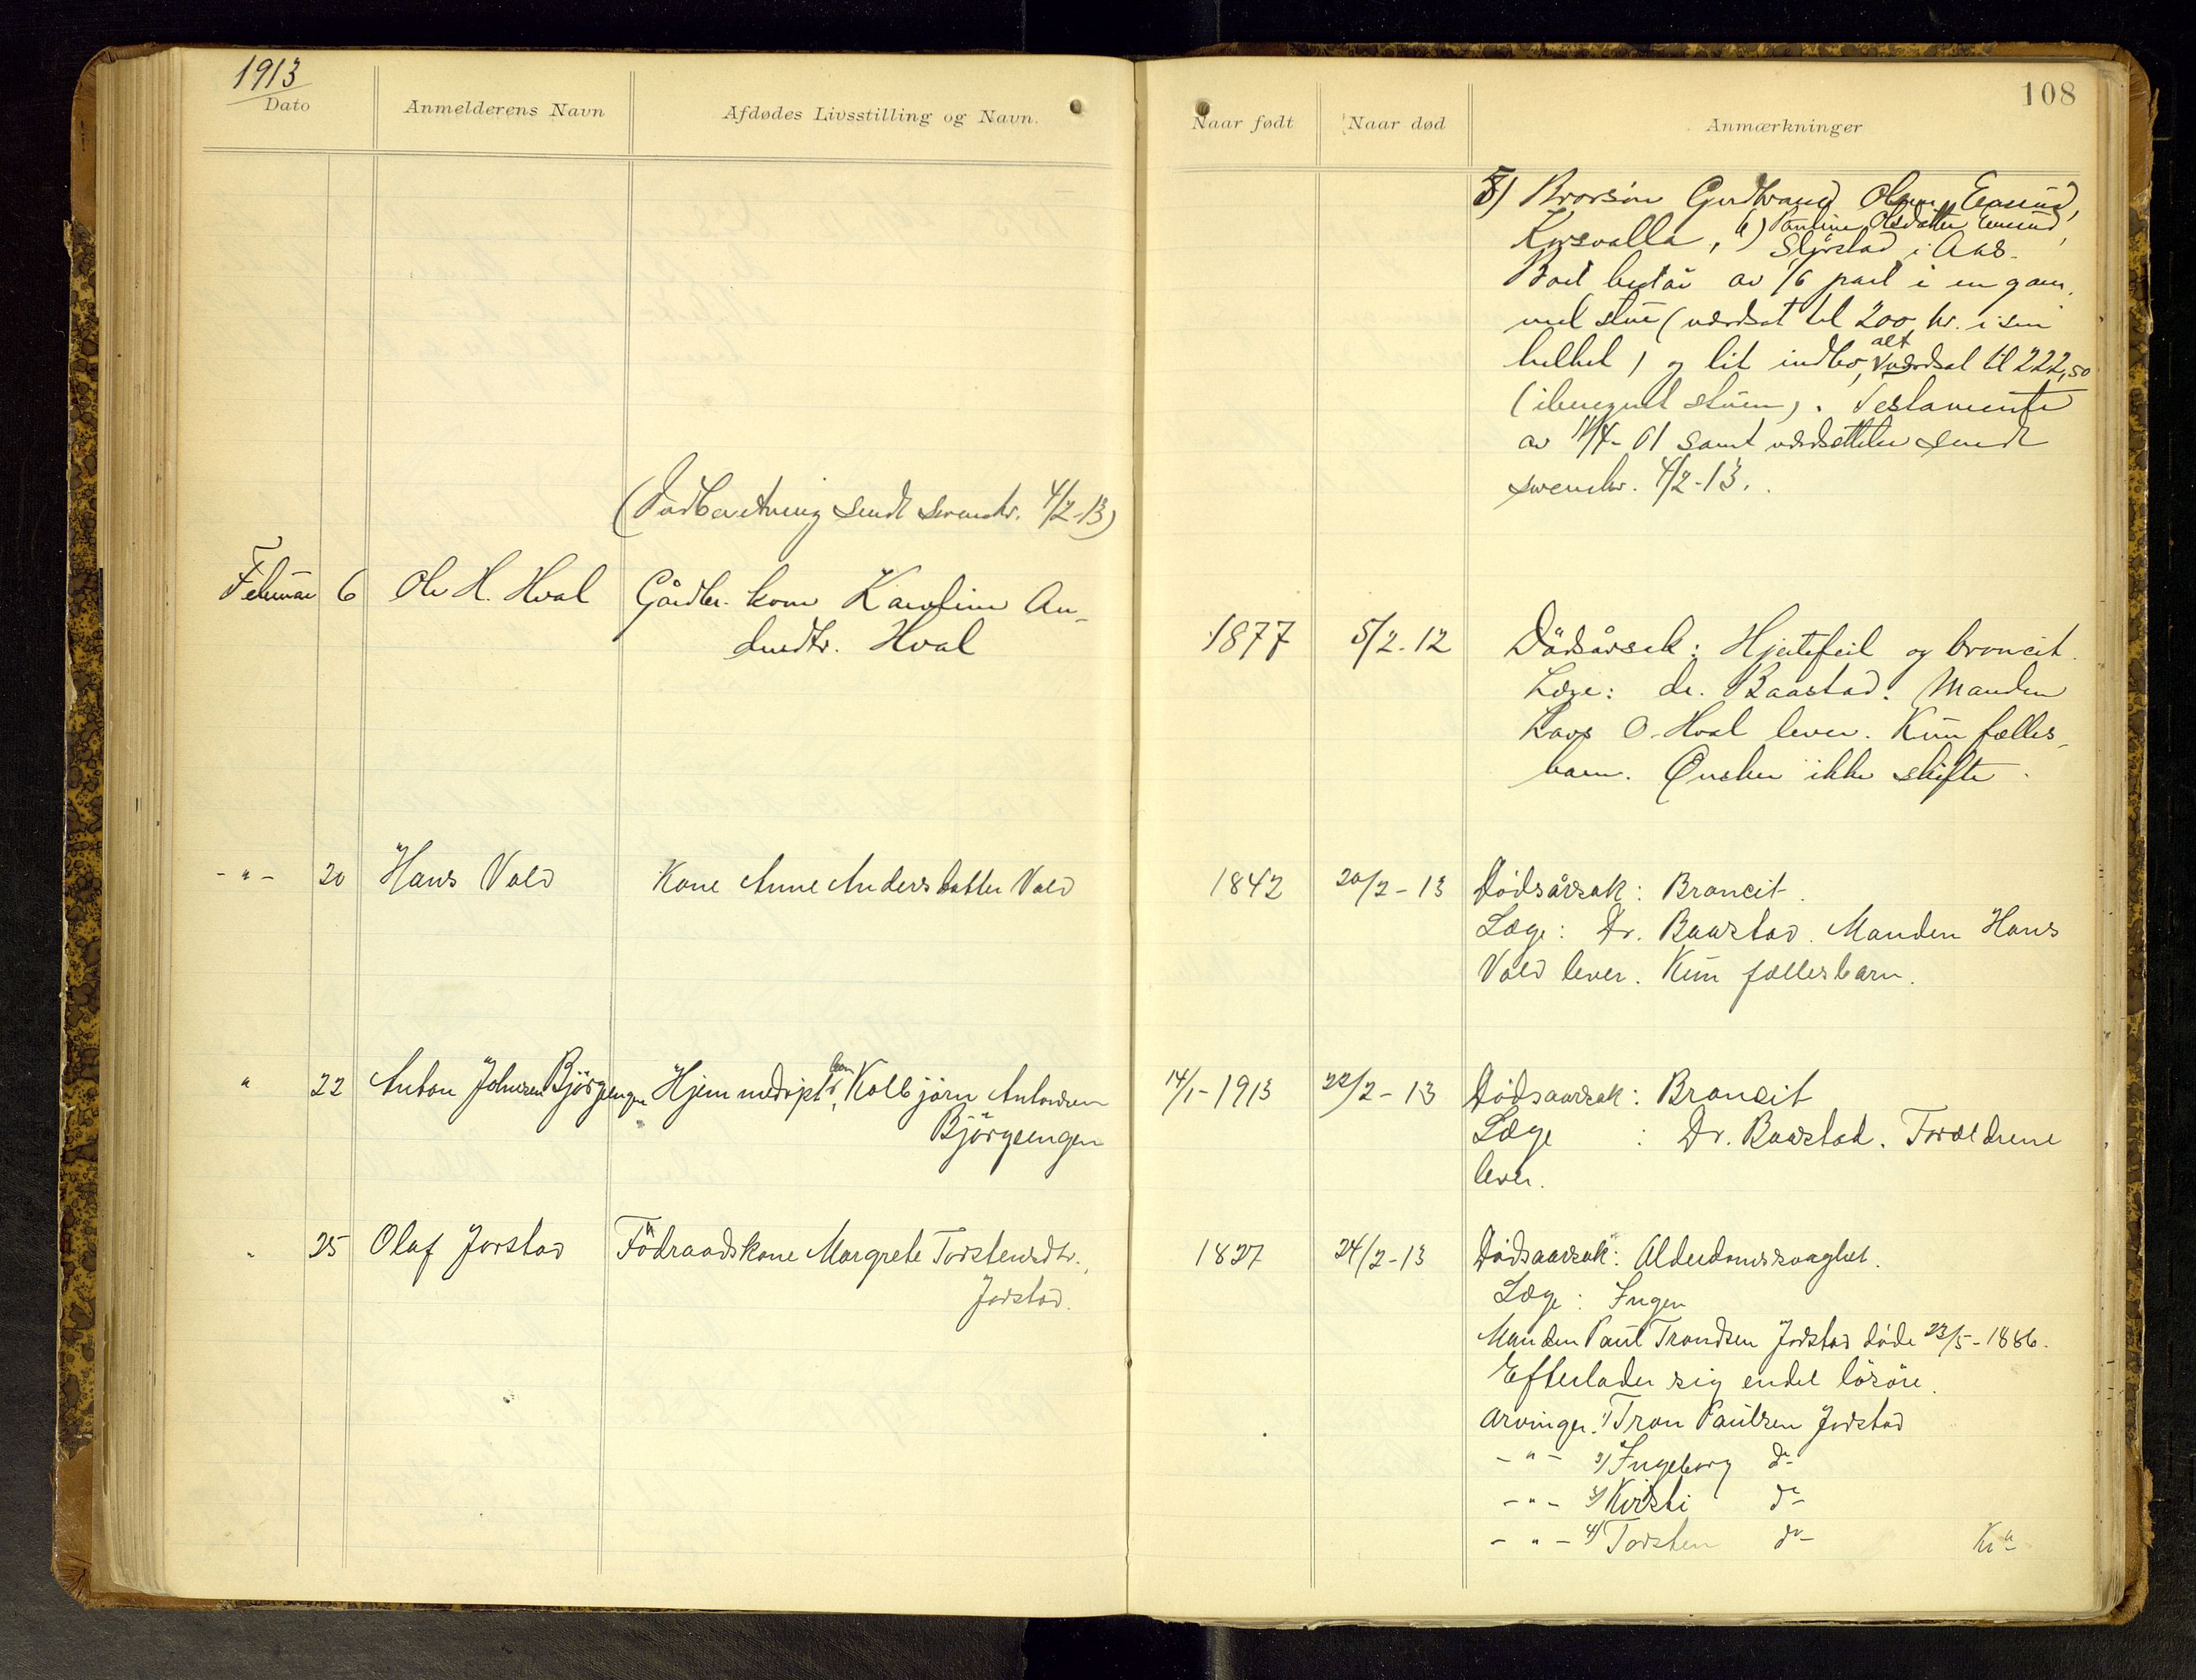 1913
108
Dato
Anmelderens Navn
Afdødes Livsstilling og Navn.
Naar født
Naar død
Anmærkninger
5) Brorsøn Gudbrand Olsen
Korsvalla, 6) Pauline Olsdatter
i Aas.
Boet består av 1/6 part i en gam
mel stue (værdsat til 200 kr. i sin
helhet) og lit indbo, alt værdsat til 222,50
(iberegnet stuen). Testamente
av 11/4-01 samt sendt
sorenskr. 4/2-13.
(Indberetning sendt sorenskr. 4/2-13)
Februar 6 Ole H. Hval
Gårdbr. kone Karoline An-
dersdtr. Hval
1877 5/2-12
Dødsårsak: Hjertefeil og broncit.
Læge: dr. Baastad. Manden
Lars O. Hval lever. Kun fælles-
barn. Ønsker ikke skifte.
-"- 20 Hans Vold
Kone Anne Andersdatter Vold
1842 20/2-13
Dødsårsak: Broncit.
Læge: Dr. Baastad. Manden Hans
Vold lever. Kun fællesbarn.
" 22 Anton Johnsen Bjørgeengen
Hjemmedøpt barn, Kolbjørn Antonsen
Bjørgeengen
14/1-1913 22/2-13
Dødsaarsak: Broncit
Læge : Dr. Baastad. Forældrene
lever.
" 25 Olaf Jorstad
Födraadskone Margrete Torstensdtr.
Jorstad.
1827 24/2-13
Dødsaarsak: Alderdomssvaghet.
Læge: Ingen
Manden Paul Trondsen Jorstad døde 23/5-1886.
Efterlader sig endel løsøre.
Arvinger: 1) Tron Paulsen Jorstad
-"- 2) Ingeborg do
-"- 3) Kirsti do
-"- 4) Torsten do Kra